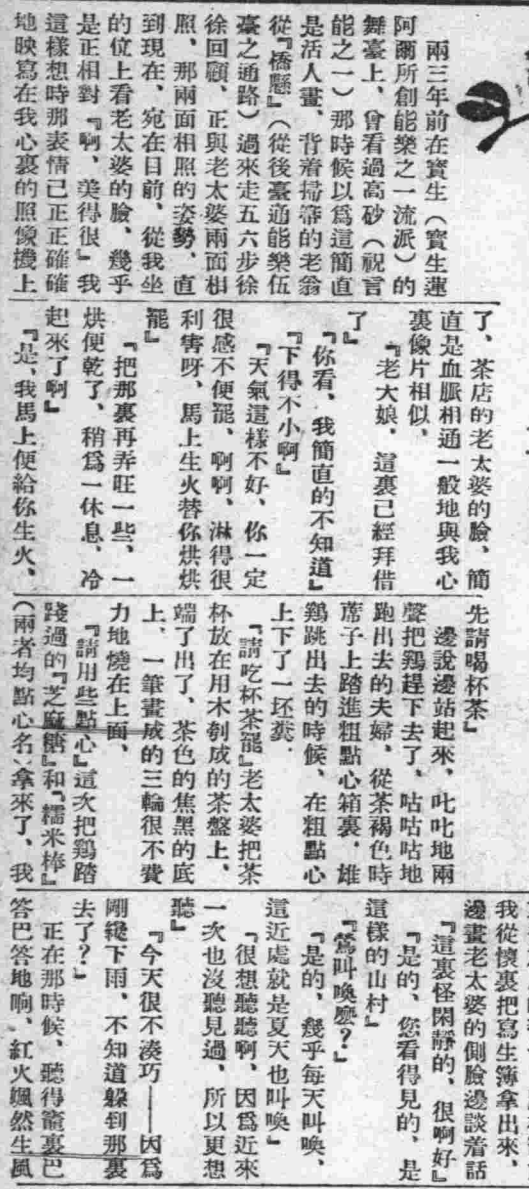 兩三年前在寶生（寶生蓮
阿爾所創能樂之一流派）的
舞臺上、曾看過高砂（祝言
能之一）那時候以爲這簡直
是活人畫、背着掃帚的老翁
從『橋懸』（從後臺通能樂伍
臺之通路）過來走五六步徐
徐回顧、正與老太婆兩面相
照、那兩面相照的姿勢、直
到現在、宛在目前、從我坐
的位上看老太婆的臉、幾乎
是正相對『啊、美得很』我
這樣想時那表情已正正確確
地映寫在我心裏的照像機上
了、茶店的老太婆的臉、簡
直是血脈相通一般地與我心
裏像片相似、
『老大娘、這裏已經拜借
了』
『你看、我簡直的不知道』
『下得不小啊』
『天氣這樣不好、你一定
很感不便罷、啊啊、淋得很
利害呀、馬上生火替你烘烘
罷』
『把那裏再弄旺一些、一
烘便乾了、稍爲一休息、冷
起來了啊』
『是、我馬上便給你生火、
先請喝杯茶』
邊說邊站起來、叱叱地兩
聲把鷄趕下去了、咕咕咕地
跑出去的夫婦、從茶褐色時
蓆子上踏進粗點心箱裏、雄
鷄跳出去的時候、在粗點心
上下了一坯糞．
『請吃杯茶罷』老太婆把茶
杯放在用木刳成的茶盤上、
端了出了、茶色的焦黑的底
上、一筆畫成的三輪很不費
力地燒在上面、
『請用些點心』這次把鷄踏
踐過的『芝麻糖』和『糯米棒』
（兩者均點心名）拿來了、我
我從懷裏把寫生簿拿出來、
邊畫老太婆的側臉邊談着話
『這裏怪閑靜的、很啊好』
『是的、您看得見的、是
這樣的山村』
『鶯叫喚麽？』
『是的、幾乎每天叫喚、
這近處就是夏天也叫喚』
『很想聽聽啊、因爲近來
一次也沒聽見過、所以更想
聽』
『今天很不湊巧——因爲
剛纔下雨、不知道躲到那裏
去了？』
正在那時候、聽得籠裏巴
答巴答地响、紅火颯然生風